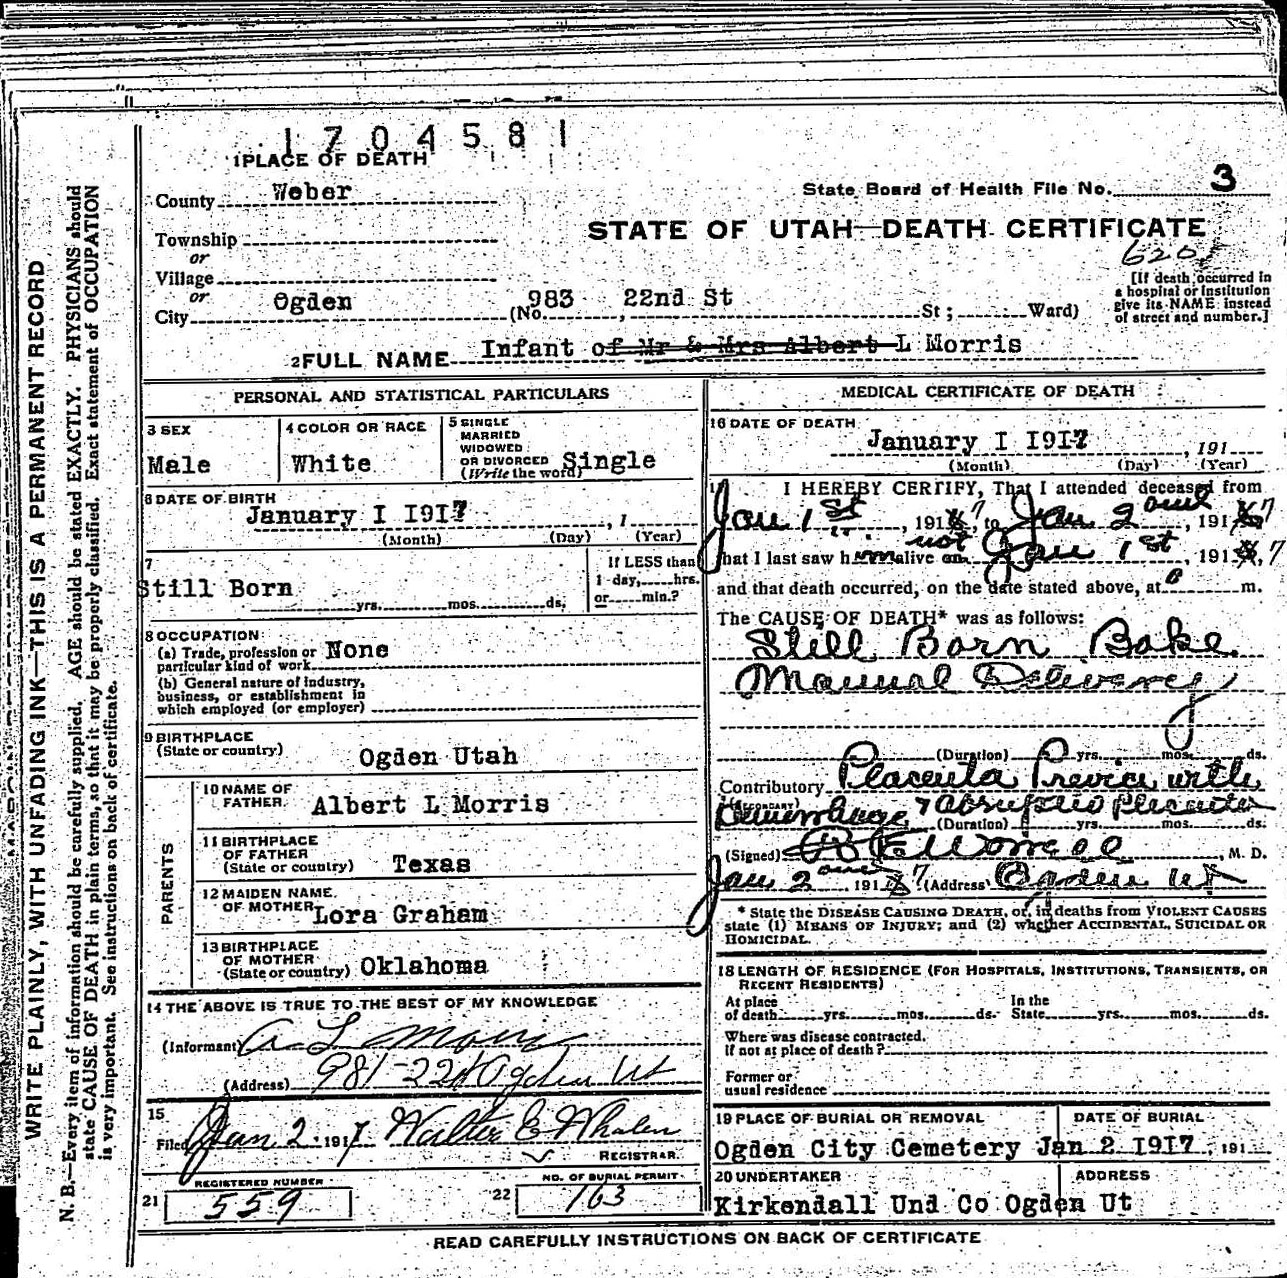 1704581
1 PLACE OF DEATH
County Weber
State Board of Health File No. 3
STATE OF UTAH—DEATH CERTIFICATE
6205
Township
or
Village
or
City Ogden (No. 983 22nd St St; Ward)
[If death occurred in
a hospital or institution
give its NAME instead
of street and number.]
2 FULL NAME Infant of Mr & Mrs Albert L Morris
PERSONAL AND STATISTICAL PARTICULARS
3 SEX
Male
4 COLOR OR RACE
White
5 SINGLE
MARRIED
WIDOWED
OR DIVORCED Single
(Write the word)
6 DATE OF BIRTH
January I I917 , 1
(Month) (Day) (Year)
7
Still Born
yrs. mos. ds.
If LESS than
1 day, hrs.
or min.?
8 OCCUPATION
(a) Trade, profession or None
particular kind of work
(b) General nature of industry,
business, or establishment in
which employed (or employer)
9 BIRTHPLACE
(State or country) Ogden Utah
PARENTS
10 NAME OF
FATHER Albert L Morris
11 BIRTHPLACE
OF FATHER
(State or country) Texas
12 MAIDEN NAME
OF MOTHER Lora Graham
13 BIRTHPLACE
OF MOTHER
(State or country) Oklahoma
14 THE ABOVE IS TRUE TO THE BEST OF MY KNOWLEDGE
(Informant) A L Morris
(Address) 981-22d Ogden Ut
15
Filed Jan 2 1917 Walter E Whalen
REGISTRAR
REGISTERED NUMBER
21 559
NO. OF BURIAL PERMIT
22 163
MEDICAL CERTIFICATE OF DEATH
16 DATE OF DEATH
January I I917 , 191
(Month) (Day) (Year)
17 I HEREBY CERTIFY, That I attended deceased from
Jan 1st , 191 7, to Jan 2 ond , 191 7
that I last saw him not alive on Jan 1st , 191 7
and that death occurred, on the date stated above, at 0 m.
The CAUSE OF DEATH* was as follows:
Still Born Babe
Manual Delivery
(Duration) 0 yrs. mos. ds.
Contributory Placenta Previa with
(SECONDARY) Hemorrhage & abruptio Placenta
(Duration) yrs. mos. ds.
(Signed) M. D.
Jan 2 ond 191 7 (Address) Ogden Ut
* State the DISEASE CAUSING DEATH, or, in deaths from VIOLENT CAUSES
state (1) MEANS OF INJURY; and (2) whether ACCIDENTAL, SUICIDAL OR
HOMICIDAL.
18 LENGTH OF RESIDENCE (FOR HOSPITALS, INSTITUTIONS, TRANSIENTS, OR
RECENT RESIDENTS)
At place In the
of death yrs. mos. ds. State yrs. mos. ds.
Where was disease contracted,
if not at place of death?
Former or
usual residence
19 PLACE OF BURIAL OR REMOVAL DATE OF BURIAL
Ogden City Cemetery Jan 2 I917 , 191
20 UNDERTAKER ADDRESS
Kirkendall Und Co Ogden Ut
READ CAREFULLY INSTRUCTIONS ON BACK OF CERTIFICATE
WRITE PLAINLY, WITH UNFADING INK—THIS IS A PERMANENT RECORD
N. B.—Every item of information should be carefully supplied. AGE should be stated EXACTLY. PHYSICIANS should
state CAUSE OF DEATH in plain terms, so that it may be properly classified. Exact statement of OCCUPATION
is very important. See instructions on back of certificate.